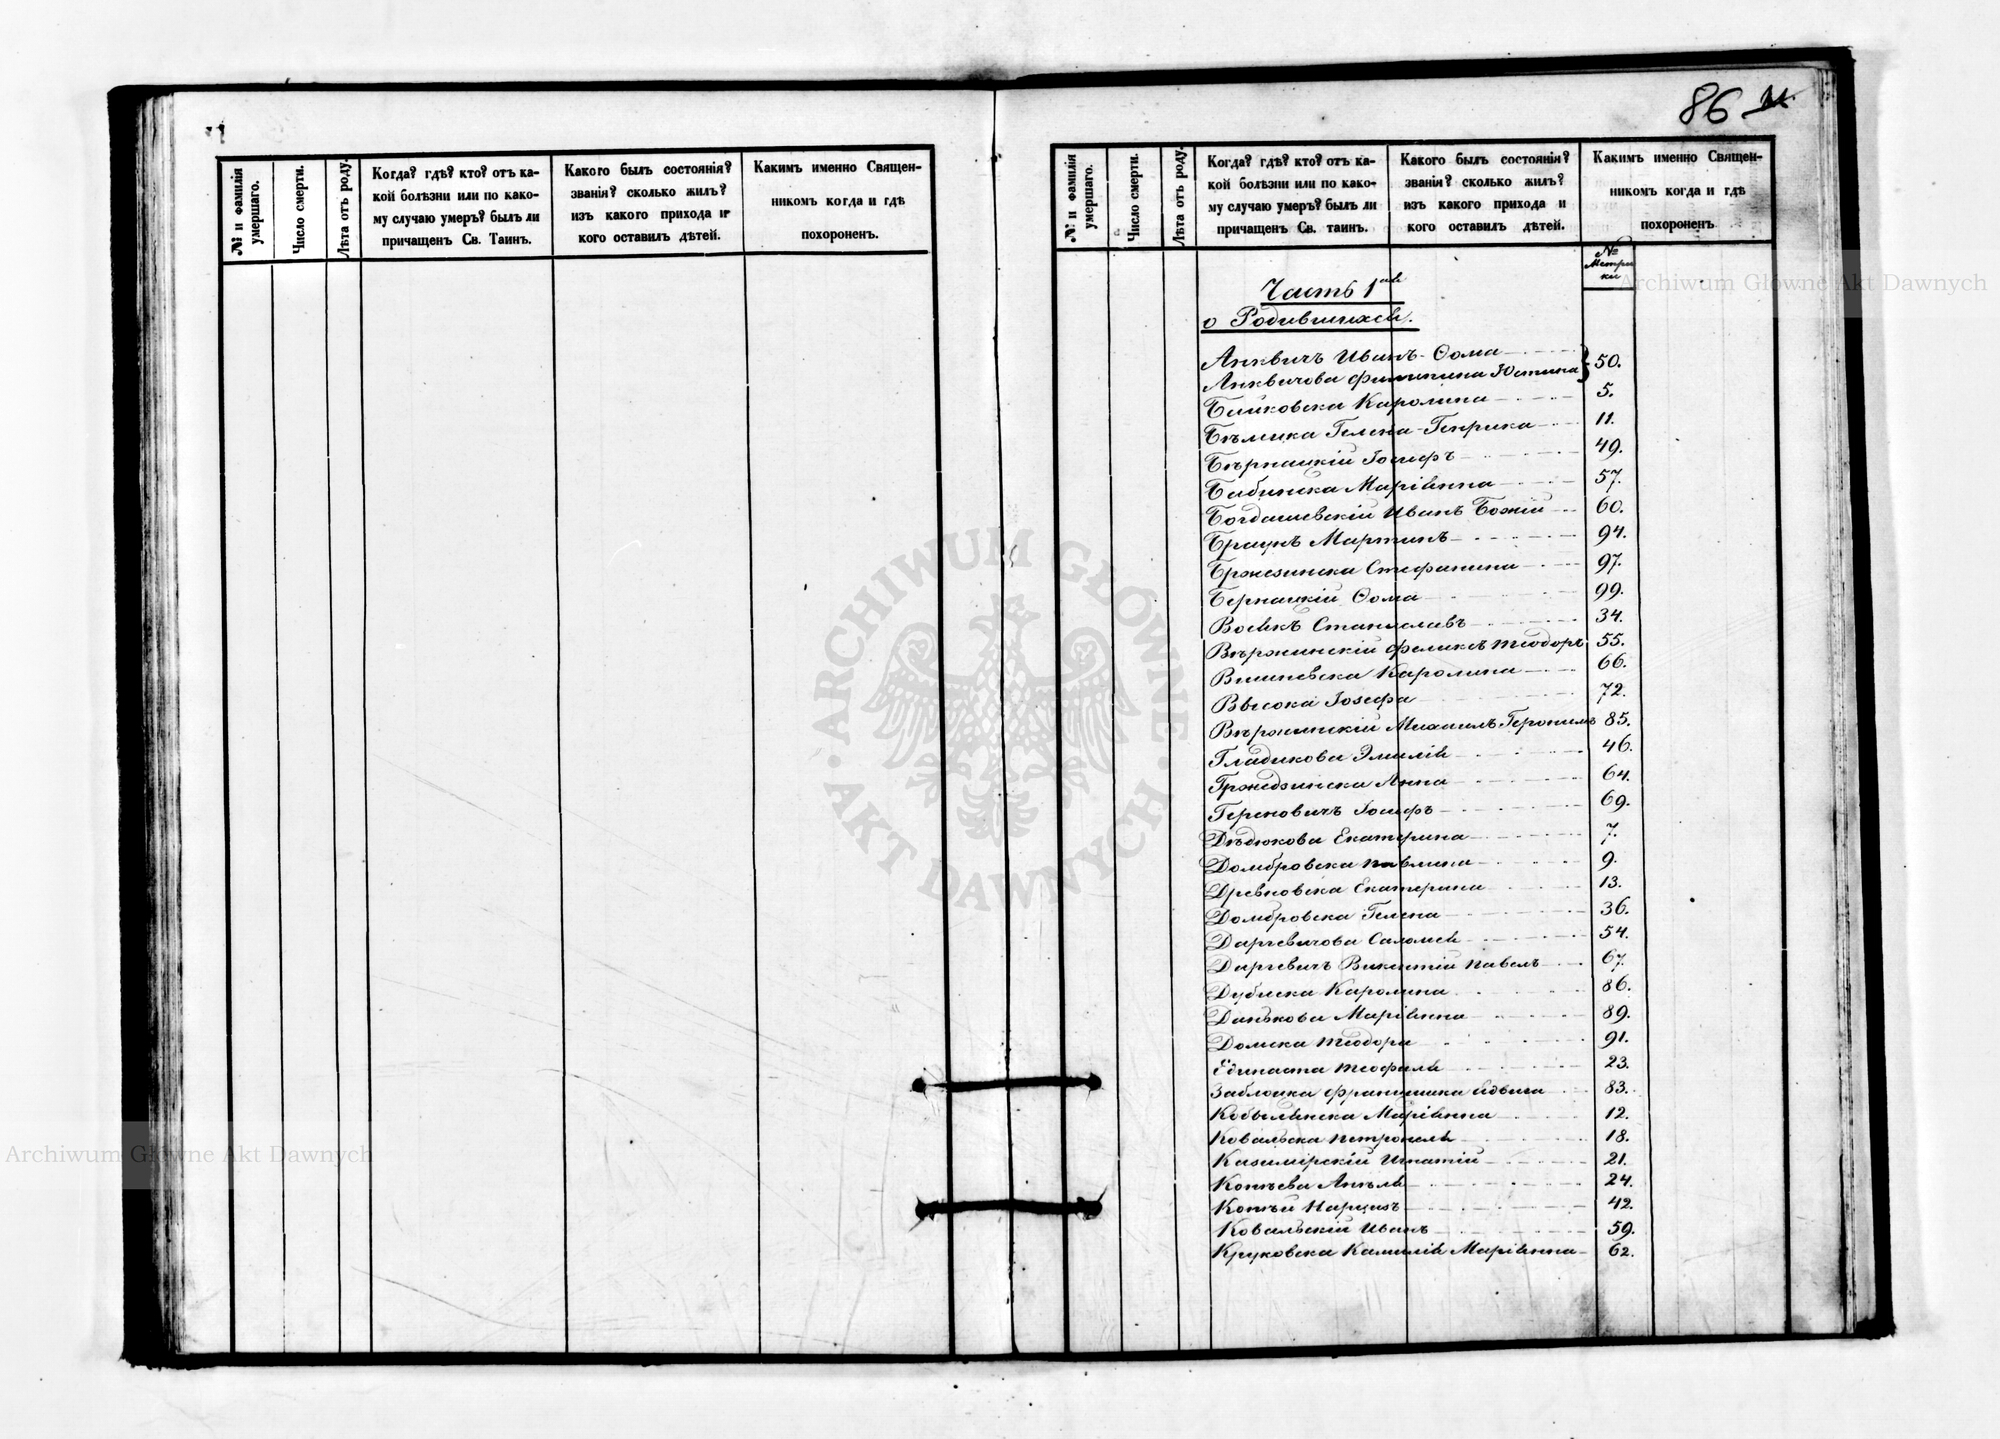 86
№ и фамилія умершаго.
Число смерти.
Лѣта отъ роду.
Когда? гдѣ? кто? отъ ка-
кой болѣзни или по како-
му случаю умеръ? былъ ли
причащенъ Св. Таинъ.
Какого былъ состоянія?
званія? сколько жилъ?
изъ какого прихода и
кого оставилъ дѣтей.
Какимъ именно Священ-
никомъ когда и гдѣ
похороненъ.
№ и фамилія умершаго.
Число смерти.
Лѣта отъ роду.
Когда? гдѣ? кто? отъ ка-
кой болѣзни или по како-
му случаю умеръ? былъ ли
причащенъ Св. таинъ.
Какого былъ состоянія?
званія? сколько жилъ?
изъ какого прихода и
кого оставилъ дѣтей.
Какимъ именно Священ-
никомъ когда и гдѣ
похороненъ
№
Метри
ки
Часть 1ая
о Родившихся.
Анквичъ Иванъ-Ѳома
Анквичова Филипина Юстина } 50.
Байковска Каролина 5.
Бѣлицка Гелена-Генрика 11.
Бѣрнацкій Іосифъ 49.
Бабинска Маріянна 57.
Богдашевскій Иванъ Божій 60.
Браунъ Мартинъ 94.
Бржезинска Стефанина 97.
Бернацкій Ѳома 99.
Воякъ Станиславъ 34.
Вѣржинскій Феликсъ Теодоръ 55.
Вишневска Каролина 66.
Высока Іозефа 72.
Вѣржинскій Михаилъ Геронимъ 85.
Гладикова Эмилія 46.
Гржедзинска Анна 64.
Гереновичъ Іосифъ 69.
Дѣдюкова Екатерина 7.
Домбровска Павлина 9.
Древновска Екатерина 13.
Домбровска Гелена 36.
Даргевичова Саломея 54.
Даргевичъ Викентій Павелъ 67.
Дубиска Каролина 86.
Данькова Маріянна 89.
Домска Теодора 91.
Единаста Теофиля 23.
Заблоцка Францишка Ядвига 83.
Кобылинска Маріянна 12.
Ковальска Петронеля 18.
Казимірскій Игнатій 21.
Копѣева Анѣля 24.
Копѣй Нарцизъ 42.
Ковальскій Иванъ 59.
Круковска Камилія Маріянна 62.
Archiwum Główne Akt Dawnych
Archiwum Główne Akt Dawnych
ARCHIWUM GŁÓWNE · AKT DAWNYCH ·